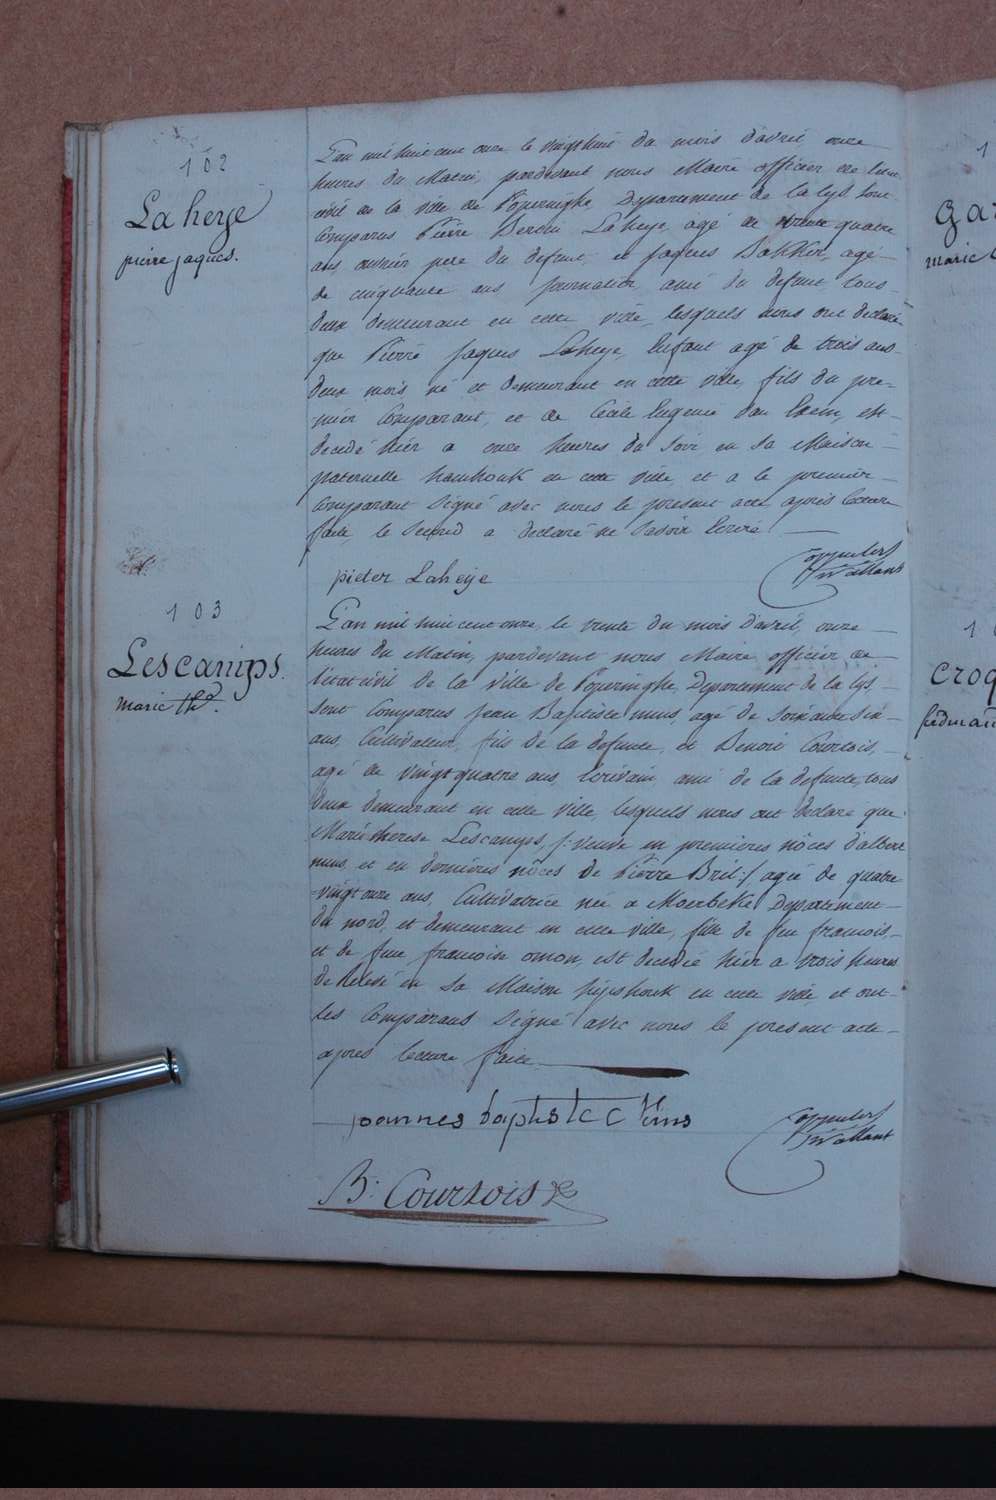 102
Laheye
pierre jaques.
L'an mil huit cent onze le vingthuit du mois d'avril, onze
heures du Matin, pardevant nous Maire officier de l'etat
civil de la ville de Poperinghe, Departement de la Lys, sont
Comparus Pierre Laheye, agé de trente quatre
ans, ouvrier pere du defunt, et Jaques Bakker, agé
de cinquante ans Journalier, ami du defunt tous
deux demeurant en cette ville, lesquels nous ont declaré
que Pierre Jaques Laheye, Enfant agé de trois ans
deux mois né et demeurant en cette ville, fils du pre-
mier Comparant, et de Cécile Eugenie Van Exem, est
decedé hier a onze heures du soir en sa Maison
paternelle hamhouk en cette ville, et a le premier
Comparant signé avec nous le present acte après lecture
faite, le second a declaré ne savoir Ecrire.
pieter Laheije
103
Lescamps.
marie thé.
L'an mil huit cent onze, le trente du mois d'avril, onze
heures du Matin, pardevant nous Maire officier de
l'état civil de la ville de Poperinghe, Departement de la Lys,
sont Comparus Jean Baptiste muns, agé de soixante six
ans, Cultivateur, fils de la defunte, et Benoit Courtois,
agé de vingt quatre ans, Ecrivain ami de la defunte, tous
deux demeurant en cette ville, lesquels nous ont declaré que
Marie therese Lescamps, /: veuve en premières nôces d'albert
muns, et en dernières nôces de Pierre Bril :/ agée de quatre
vingt onze ans, Cultivatrice née a Moerbeke Departement
du nord, et demeurant en cette ville, fille de feu francois,
et de feue francoise omon, est decedée hier a trois heures
de relevé en sa Maison hipshouk en cette ville, et ont
les Comparans signé avec nous le present acte
apres lecture faite.
joannes baptiste muns
B: Courtois